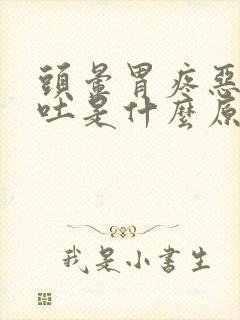 頭暈胃疼惡
吐是什麼原
我是小書生